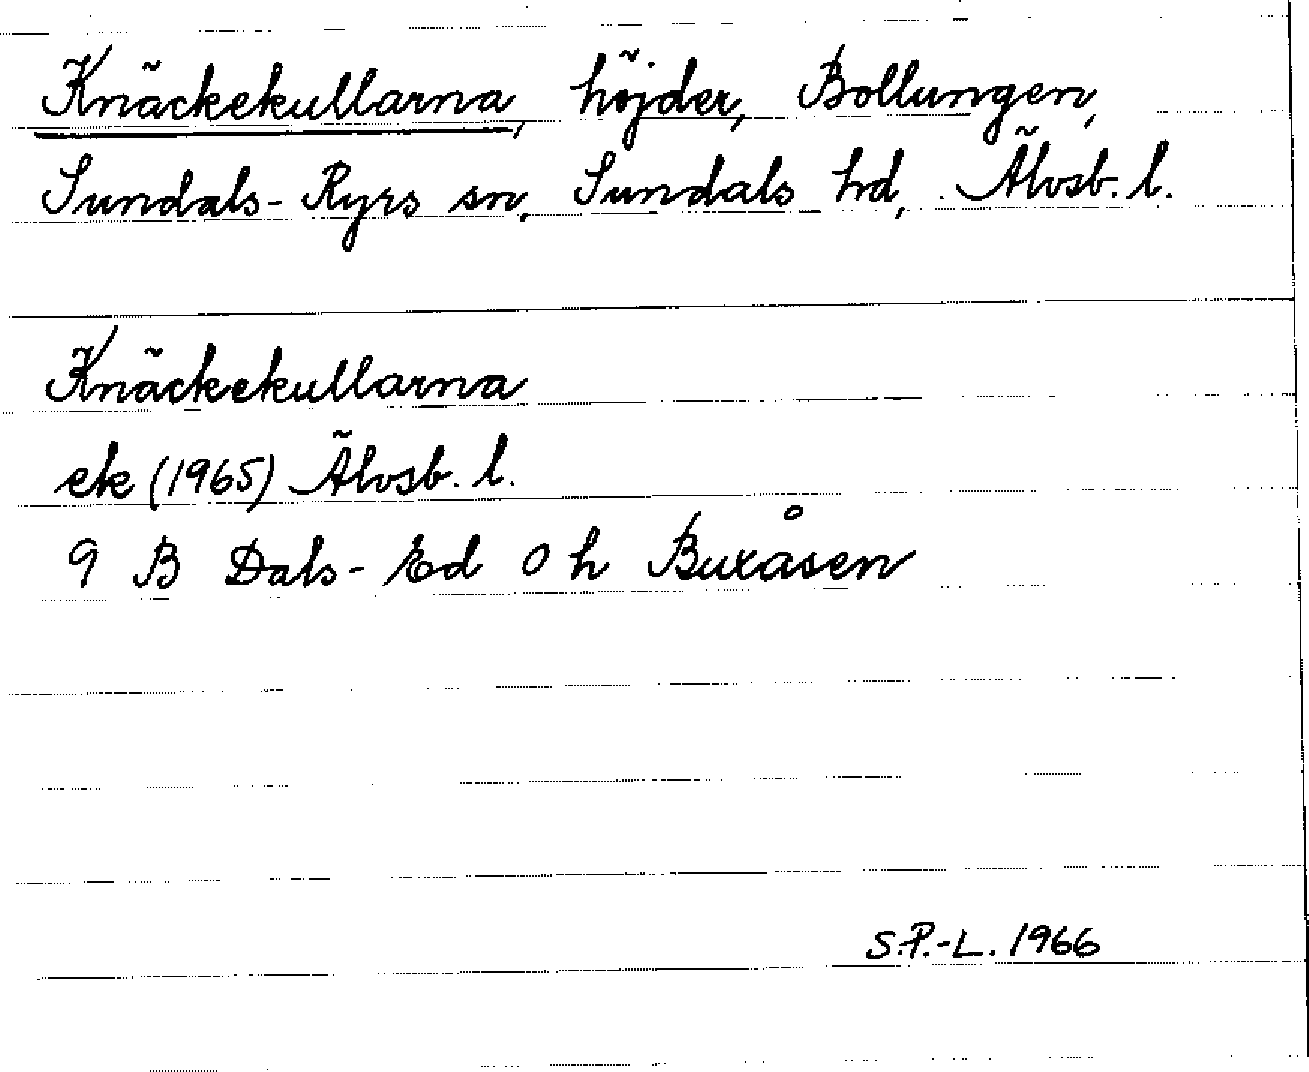 Knäckekullarna, höjder, Bollungen,
Sundals-Ryrs sn, Sundals hd, Älvsb. l.
Knäckekullarna
ek (1965) Älvsb. l.
9 B Dals-Ed 0 h Buxåsen
S.P.-L. 1966